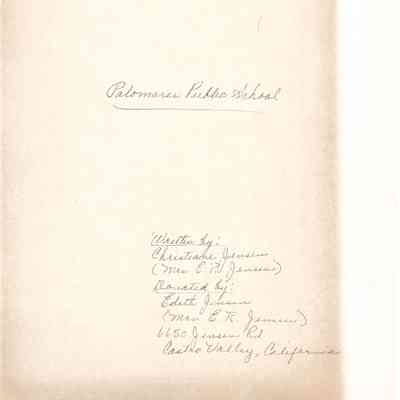 Palomares Public School
Written by:
Christiane Jensen
(Mrs E. R. Jensen)
Donated by:
Edith Jensen
(Mrs E. R. Jensen)
6650 Jensen Rd
Castro Valley, California